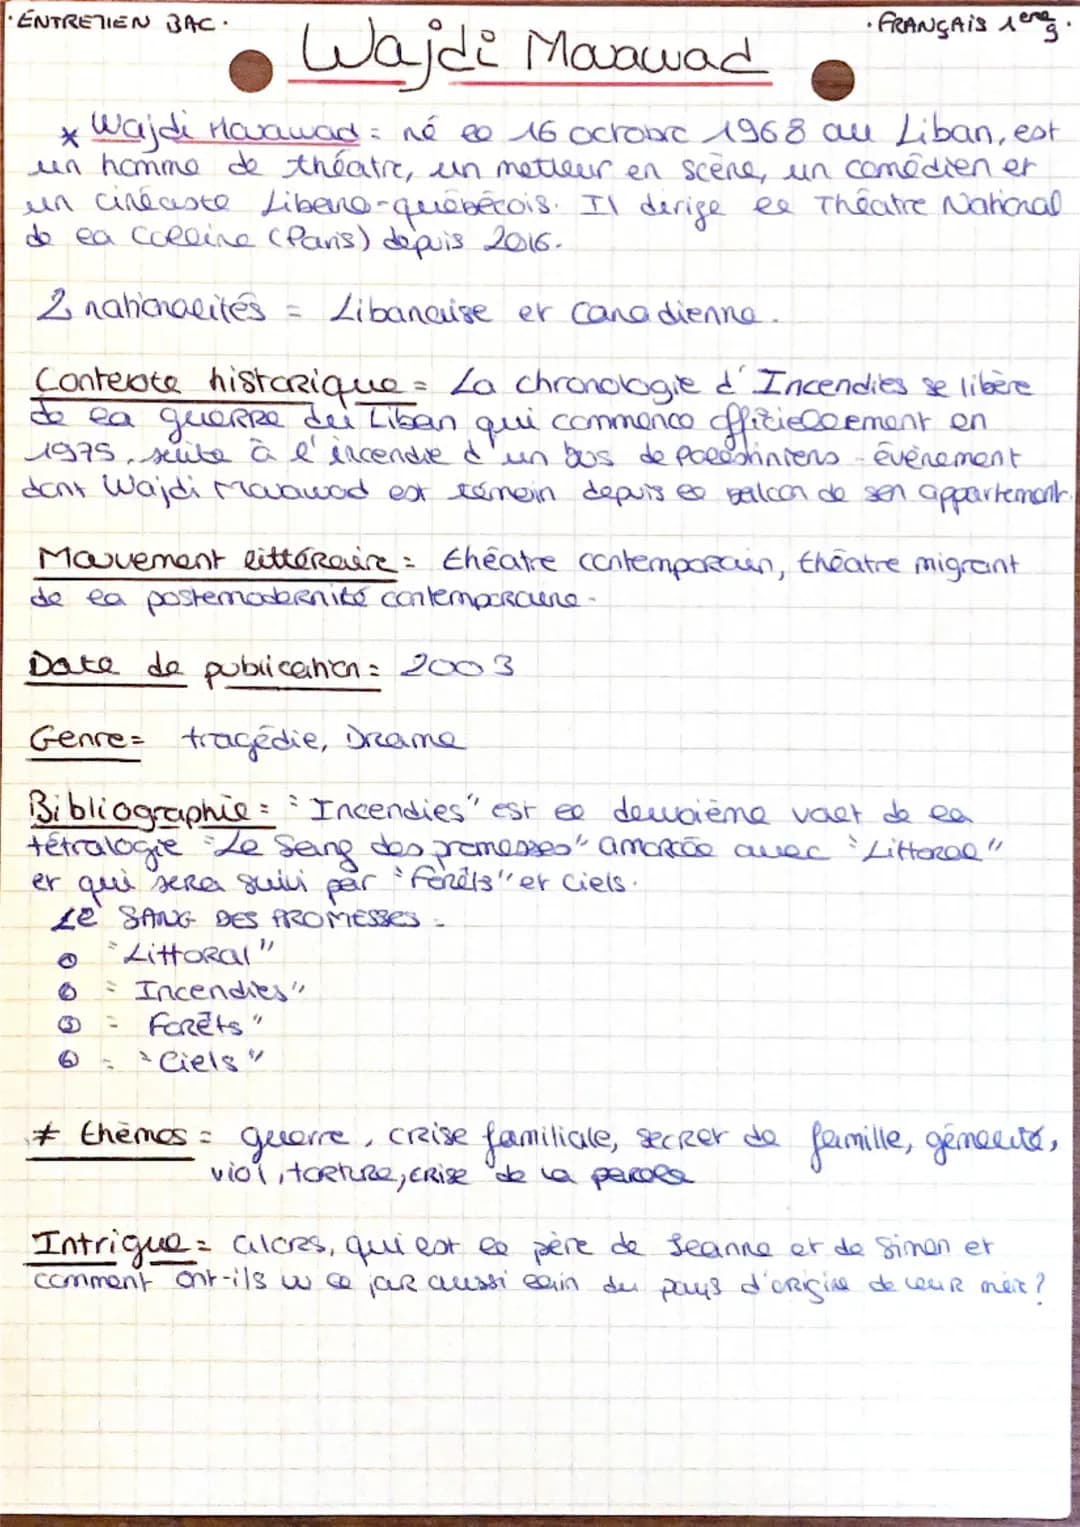 ·ENTRETIEN BAC·
·FRANÇAIS 1ère g·
Wajdi Mouawad
* Wajdi Mouawad = né le 16 octobre 1968 au Liban, est
un homme de théatre, un metteur en scène, un comédien et
un cinéaste Libano-québécois. Il dirige le Théatre National
de la Colline (Paris) depuis 2016.
2 nationalités = Libanaise et Canadienne.
Contexte historique = La chronologie d'Incendies se libère
de la guerre du Liban qui commence officiellement en
1975, suite à l'incendie d'un bus de palestiniens - évènement
dont Wajdi Mouawad est témoin depuis le balcon de son appartement.
Mouvement littéraire = théatre contemporain, théatre migrant
de la postmodernité contemporaine.
Date de publication = 2003
Genre = tragédie, Drame
Bibliographie = "Incendies" est le deuxième volet de la
tétralogie "Le Sang des promesses" amorcée avec "Littoral"
et qui sera suivi par "Forêts" et Ciels.
LE SANG DES PROMESSES =
"Littoral"
= Incendies"
③ = Forêts"
= "Ciels"
* thèmes = guerre, crise familiale, secret de famille, gémellité,
viol, torture, crise de la parole
Intrigue = alors, qui est le père de Jeanne et de Simon et
comment ont-ils vu le jour aussi loin du pays d'origine de leur mère?